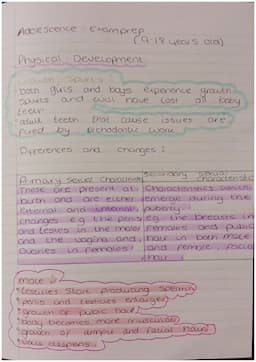 Adolescence : Exam prep
(9-18 years old)
Physical Development
Growth Spurts :
• both girls and boys experience growth
spurts and will have lost all baby
teeth
• adult teeth that cause issues are
fixed by orthodontic work
Differences and changes :
Primary sexual characteristics
These are present at
birth and are either
external and internal
changes e.g the penis
and testes in the males
and the vagina and
ovaries in females
secondary sexual characteristics
Characteristics which
emerge during the
puberty.
e.g the breasts in
females and pubic
hair in both male
and female facial
hair
male :
• testicles start producing sperm
• penis and testicles enlarge
• growth of pubic hair
• body becomes more muscular
• growth of armpit and facial hair
• voice deepens